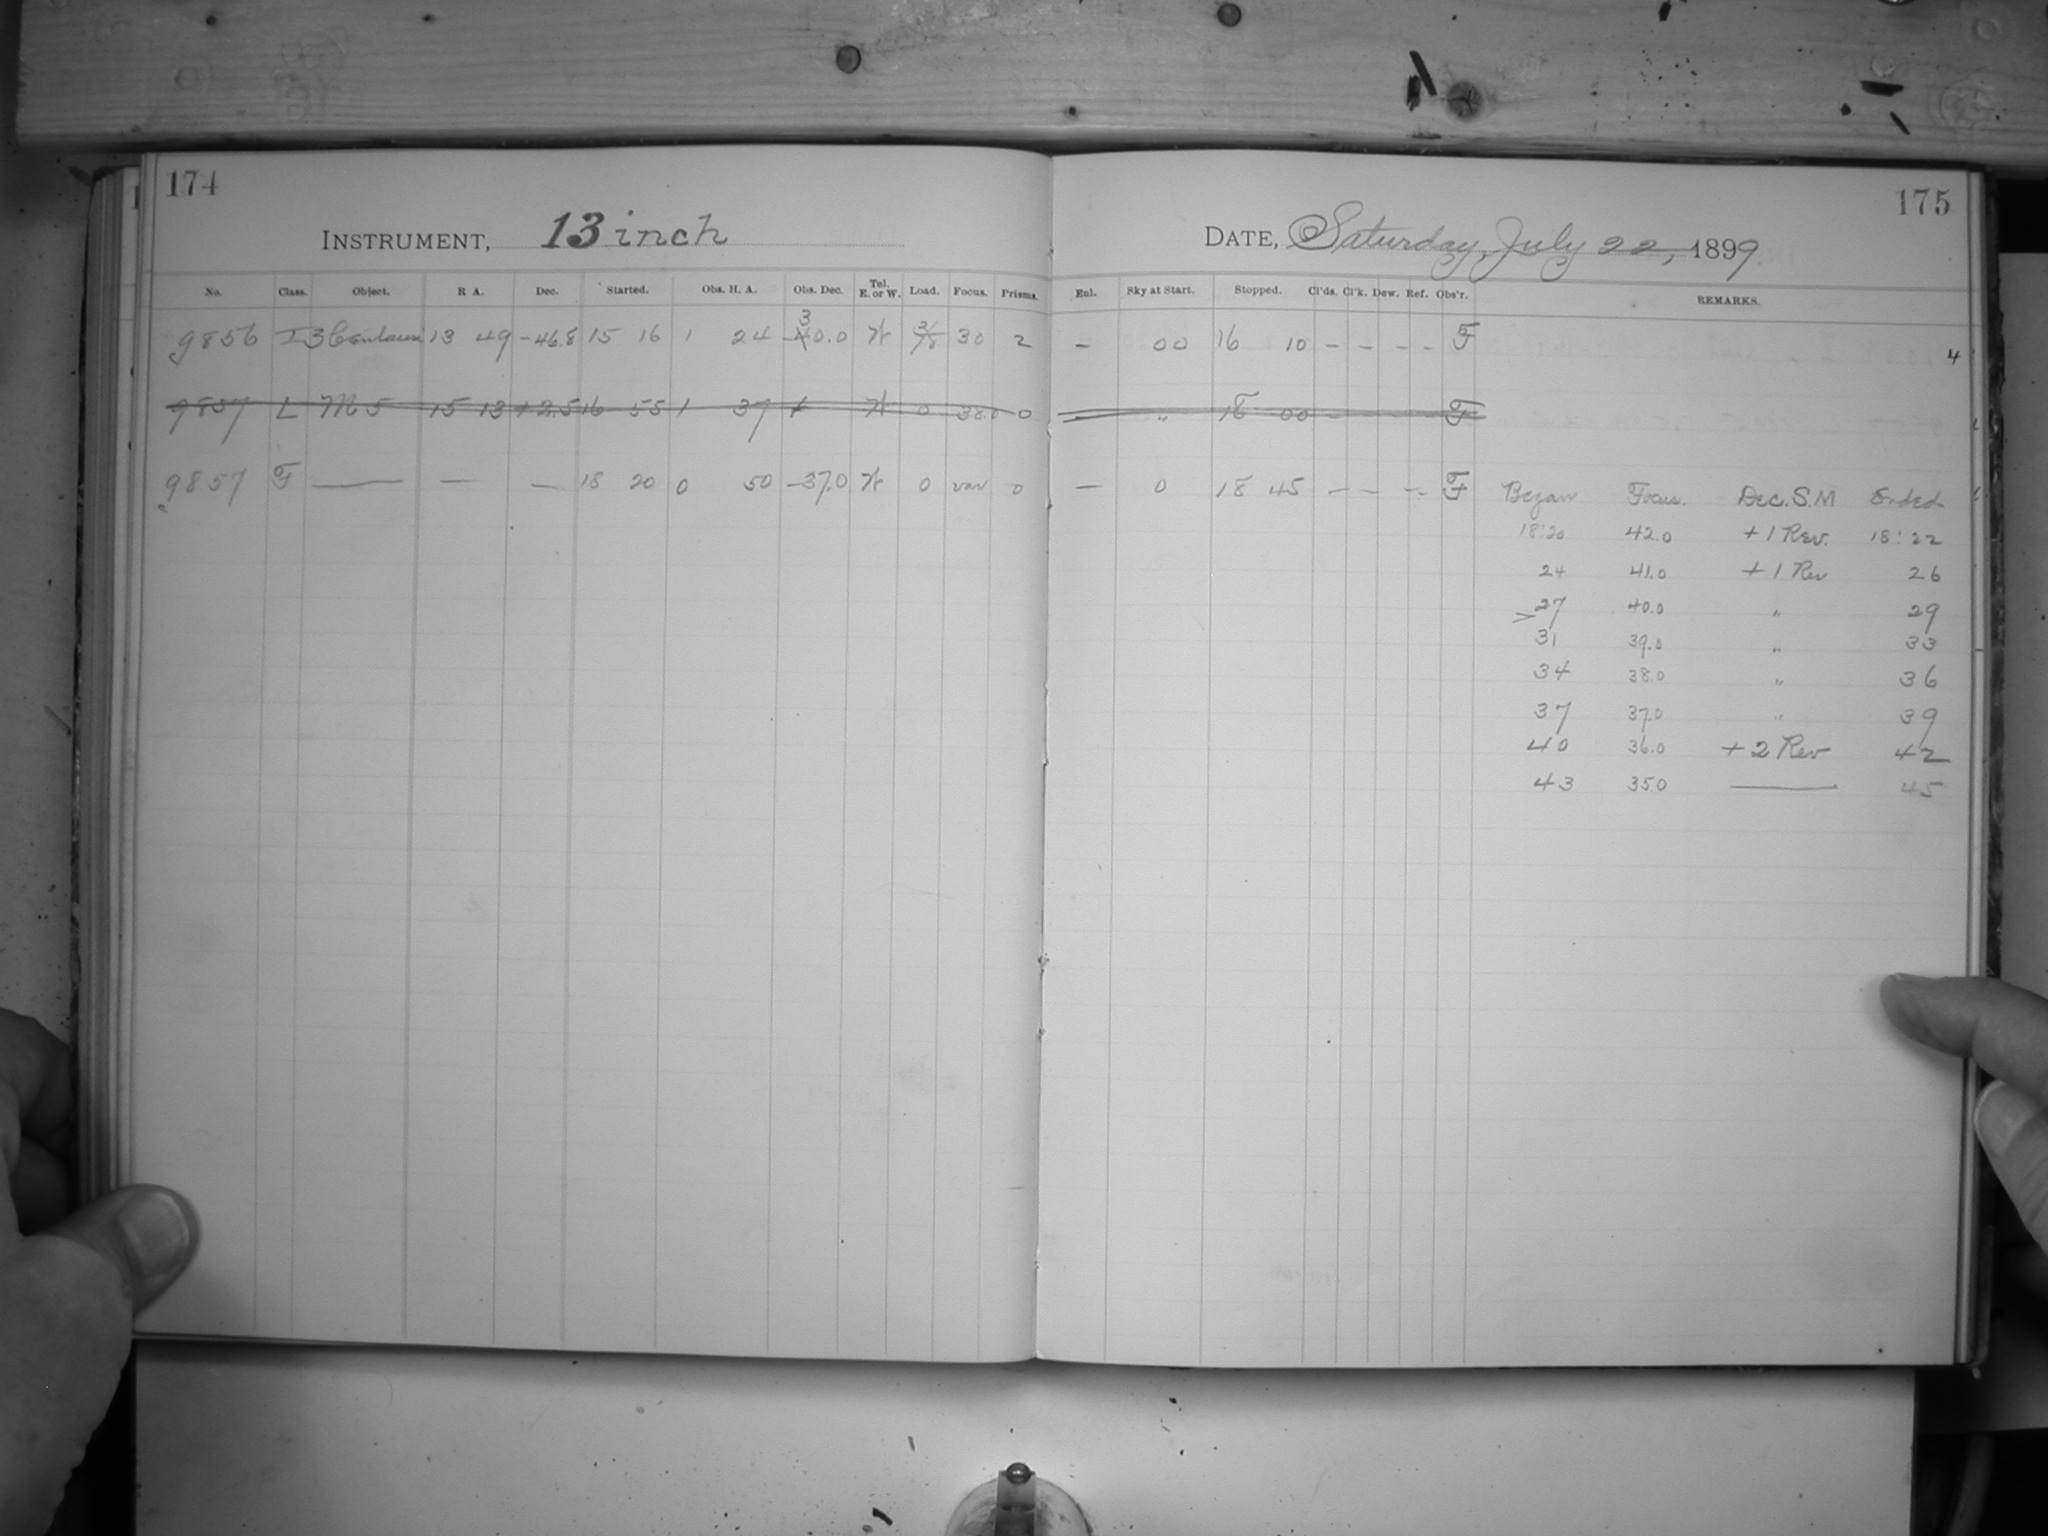 174
INSTRUMENT, 13 inch
No. Class. Object. R A. Dec. Started. Obs. H. A. Obs. Dec. Tel. E. or W. Load. Focus. Prisms.
9856 I 3 Centauri 13 49 -46.8 15 16 1 24 30 2
9857 L M 5 15 13 +2.5 16 55 1 37 + 0 38.0 0
9857 F — — — 18 20 0 50 -37.0 0 var 0
175
DATE, Saturday, July 22, 1899
Eul. Sky at Start. Stopped. Cl'ds. Cl'k. Dew. Ref. Obs'r. REMARKS.
– 00 16 10 – – – – F 4
— " 18 00 – – – – F
— 0 18 45 – – – – F Began Focus. Dec. S.M Ended
18:20 42.0 +1 Rev. 18:22
24 41.0 +1 Rev 26
>27 40.0 " 29
31 39.0 " 33
34 38.0 " 36
37 37.0 " 39
40 36.0 +2 Rev 42
43 35.0 — 45